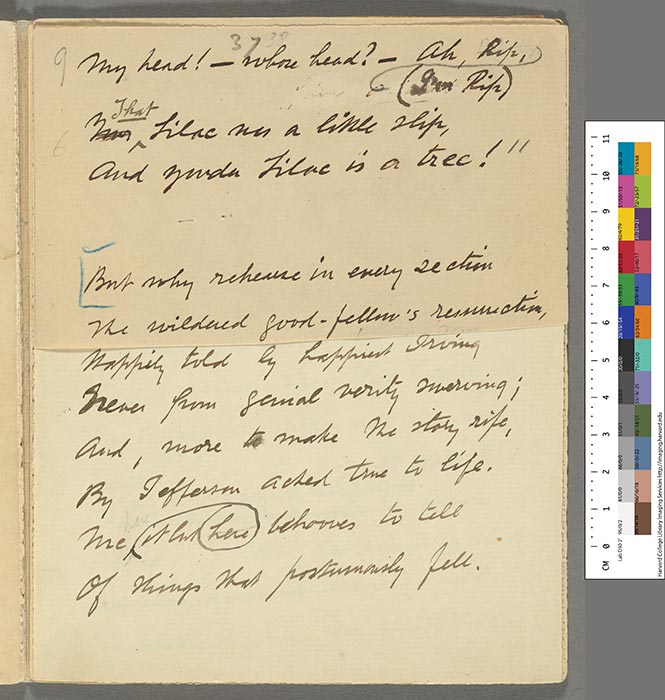 37
9 My head! — whose head? — Ah, Rip,
(Rip)
That
6 Lilac was a little slip,
And yonder Lilac is a tree!"
But why rehearse in every section
The wildered good-fellow's resurrection,
Happily told by happiest Irving
Never from genial verity swerving;
And, more to make the story rife,
By Jefferson acted true to life.
Me, it but here behooves to tell
Of things that postumously fell.
CM 0 1 2 3 4 5 6 7 8 9 10 11
Harvard College Library Imaging Services http://imaging.harvard.edu